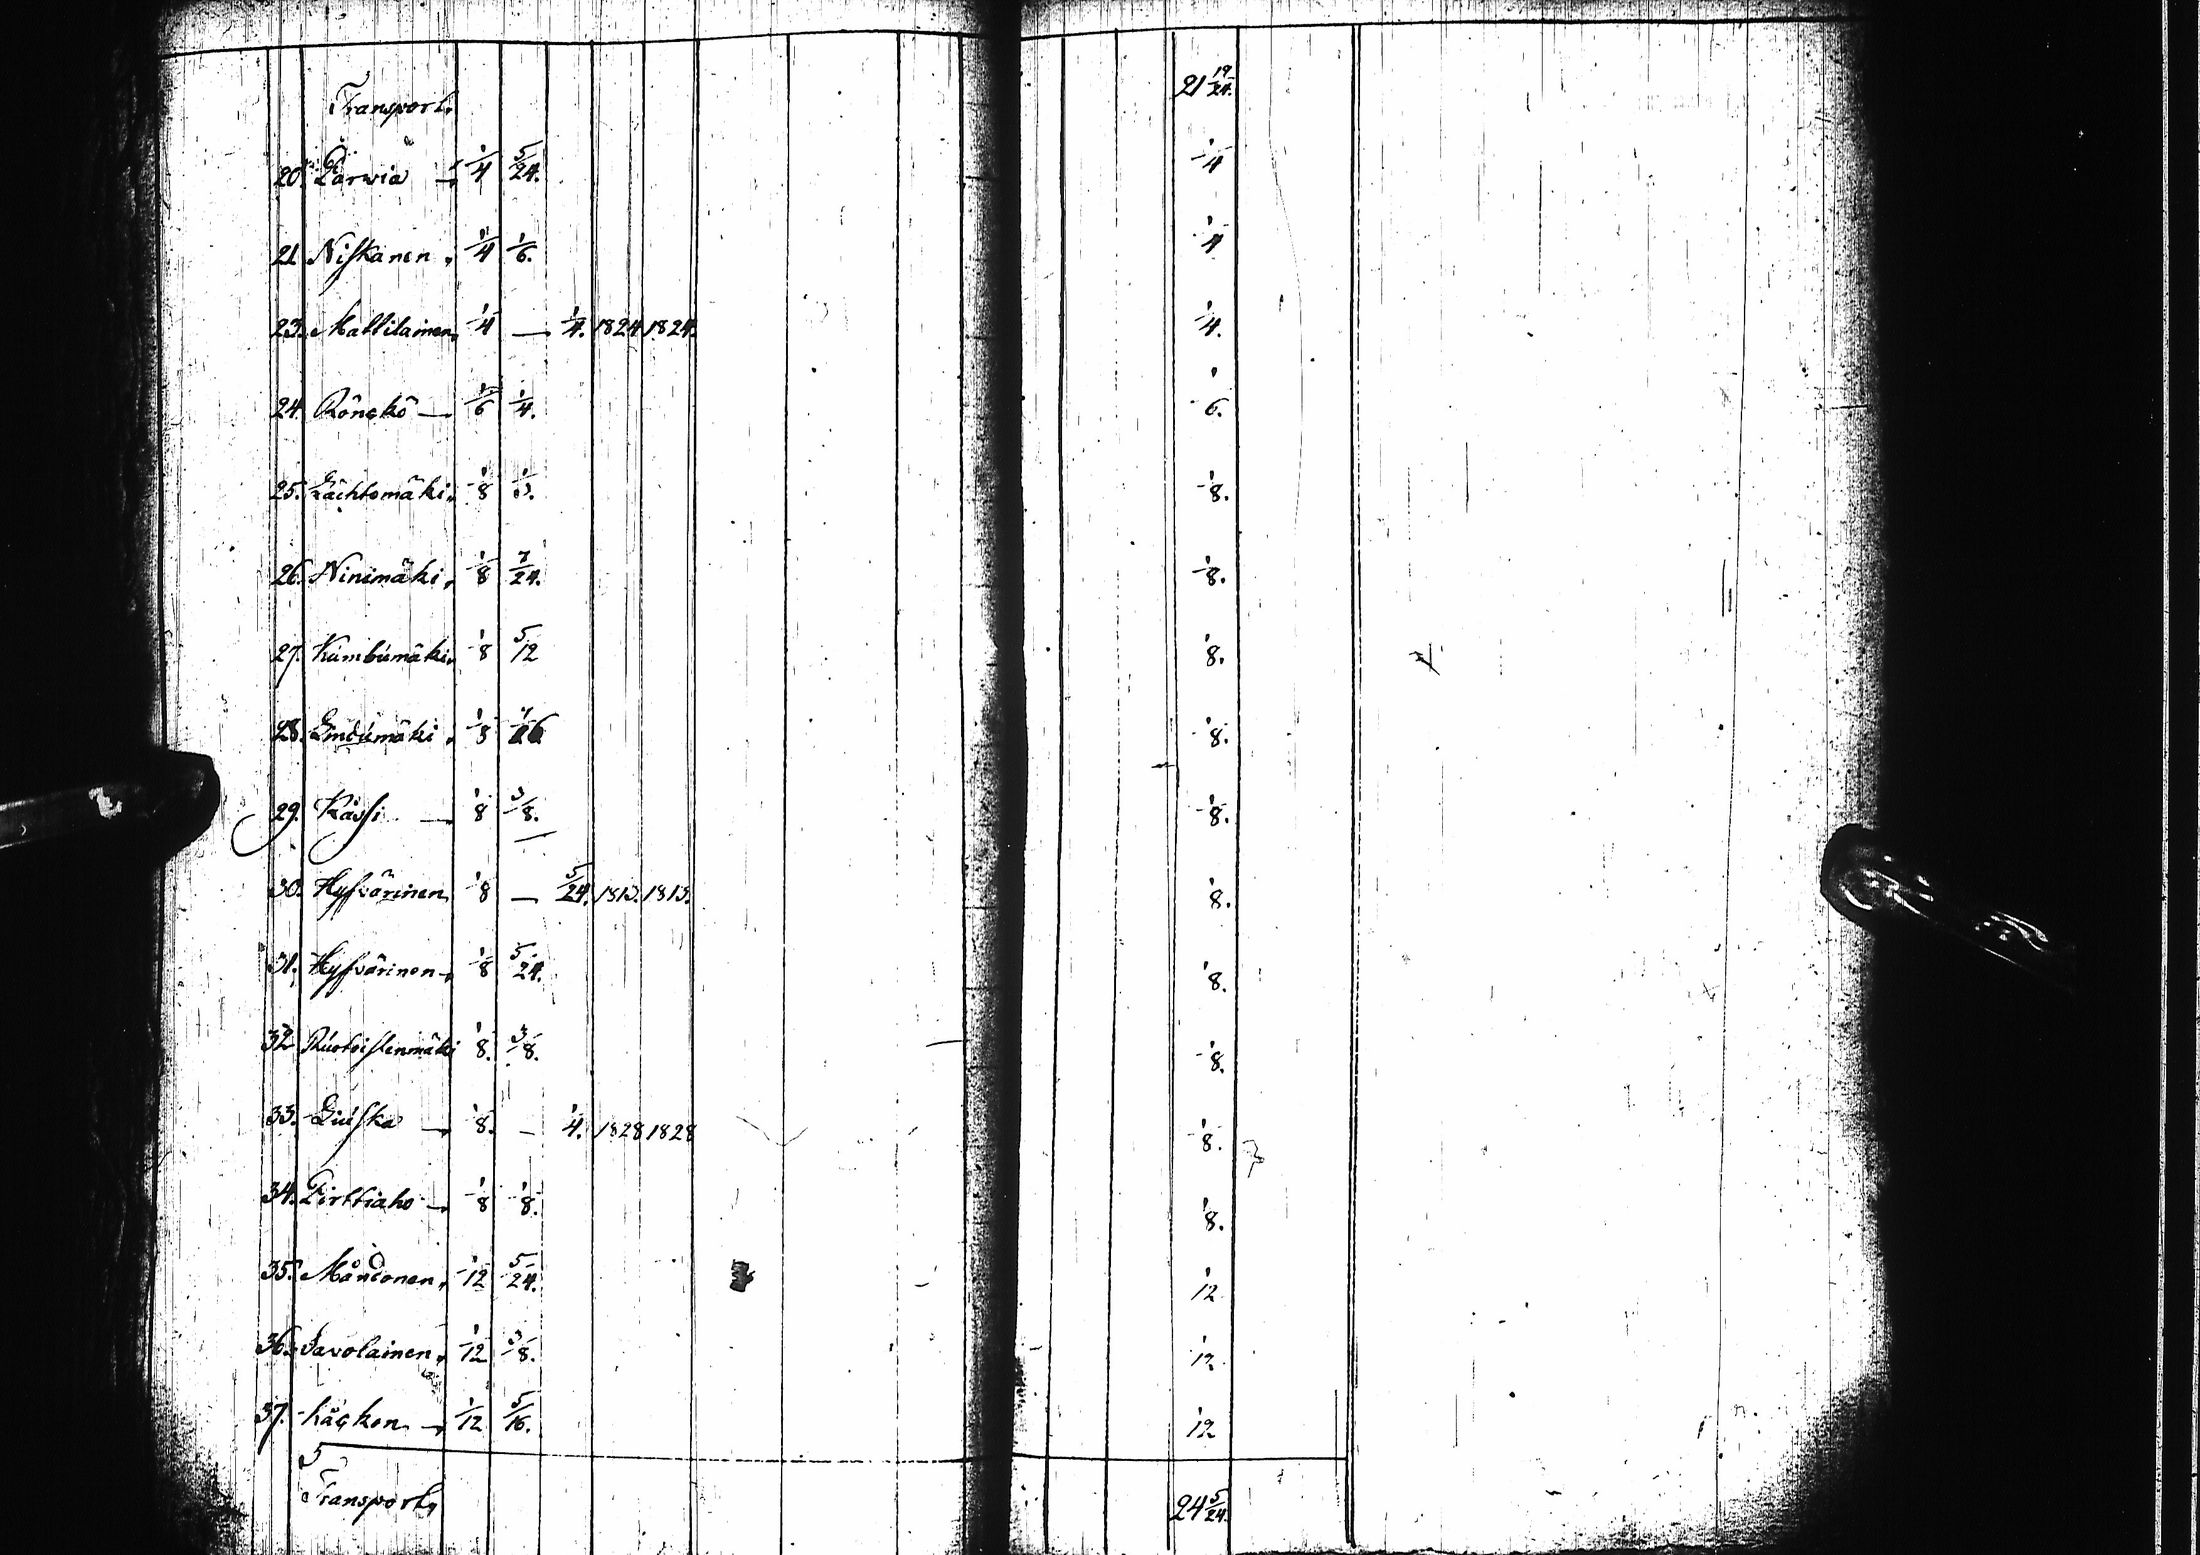 Transport. 21 19/24.
20. Pärwiä — 1/4 5/24. 1/4
21 Niskanen, 1/4 1/6. 1/4
23. Mattilainen, 1/4 — 1/4. 1824. 1824. 1/4.
24. Rönckö — 1/6 1/4. 1/6.
25. Lächtomäki, 1/8 1/3. 1/8.
26. Ninimäki, 1/8 7/24. 1/8.
27. Kumbumäki, 1/8 5/12 1/8.
28. Lindumäki, 1/8 1/8.
29. Kässi — 1/8 3/8. 1/8.
30. Hyfvärinen 1/8 — 5/24. 1813. 1813. 1/8.
31. Hyfvärinen, 1/8 5/24. 1/8.
32 Ruotoistenmäki 1/8. 3/8. 1/8.
33. Liuska — 1/8. — 1/4. 1828 1828 1/8.
34. Pirttiaho — 1/8 1/8. 1/8.
35. Måndonen, 1/12 5/24. 1/12
36. Savolainen, 1/12 3/8. 1/12
37. Käcken — 1/12 5/16. 1/12
Transport, 24 5/24.